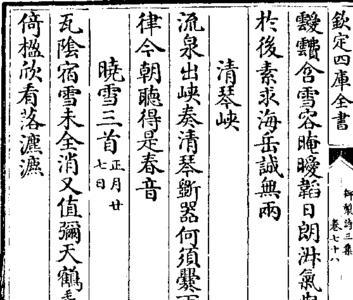 欽定四庫全書
御製詩三集
卷七十八
靉靆含雪容晻曖韜日朗
於後素求海岳誠無兩
清琴峽
流泉出峽奏清琴斵器何須爨
律今朝聽得是春音
曉雪三首正月廿七日
瓦陰宿雪未全消又值彌天鶴
倚楹欣看落瀌瀌